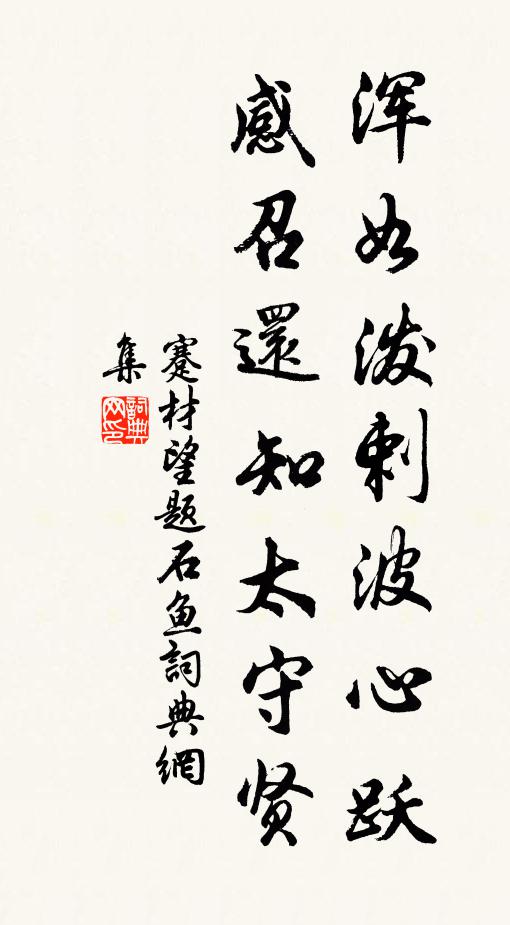 浑如泼剌波心跃
感召還知太守贤
蹇材望题石鱼詞典網
集
詞典
网印